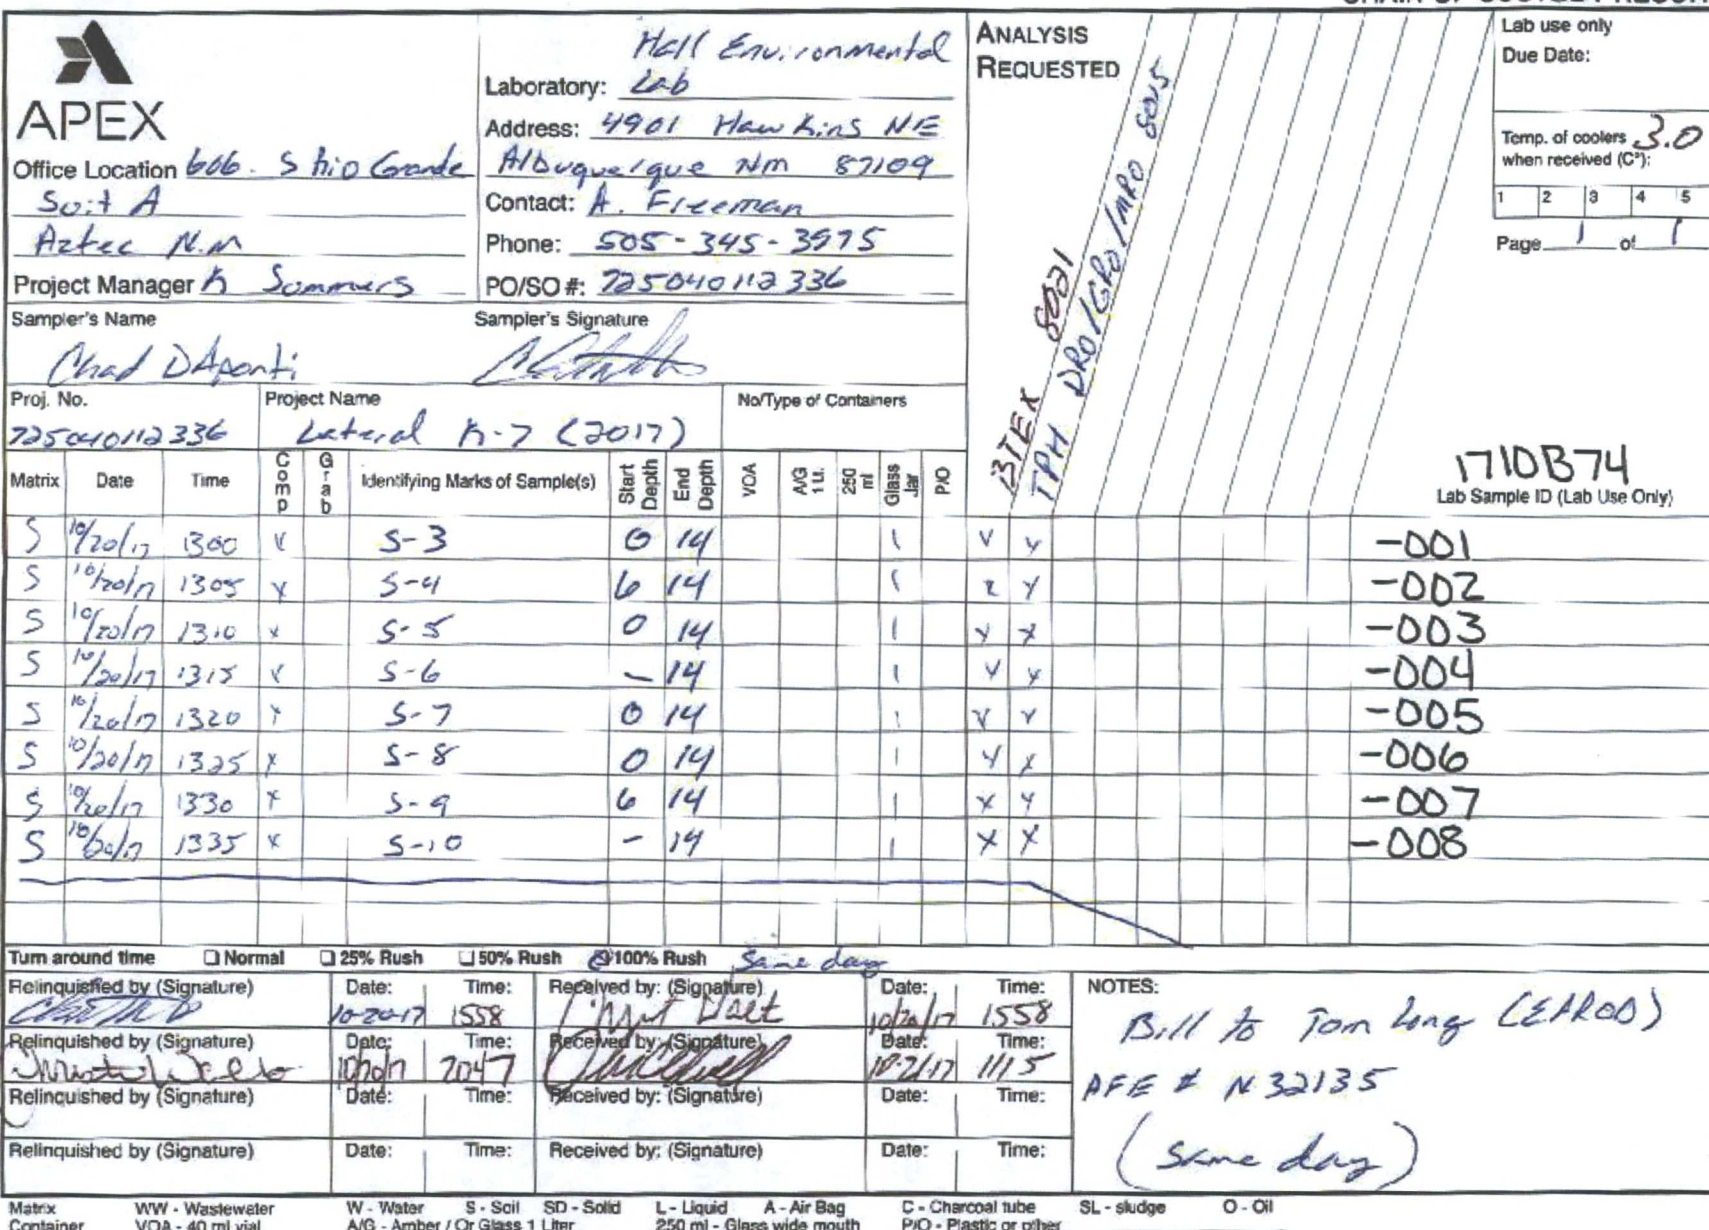 APEX
Office Location 606. S Rio Grande
Suit A
Aztec N.M
Project Manager K Summers
Hall Environmental
Laboratory: Lab
Address: 4901 Hawkins NE
Albuquerque NM 87109
Contact: A. Freeman
Phone: 505-345-3975
PO/SO #: 725040112336
ANALYSIS
REQUESTED
BTEX 8021
TPH DRO/GRO/MRO 8015
Lab use only
Due Date:
Temp. of coolers 3.0
when received (C°):
1 2 3 4 5
Page 1 of 1
Sampler's Name
Chad DAponti
Sampler's Signature
Proj. No.
725040112336
Project Name
Lateral K-7 (2017)
No/Type of Containers
Matrix Date Time Comp Grab Identifying Marks of Sample(s) Start Depth End Depth VOA A/G 1 Lt. 250 ml Glass Jar P/O
1710B74
Lab Sample ID (Lab Use Only)
S 10/20/17 1300 X S-3 0 14 1 X X -001
S 10/20/17 1305 X S-4 6 14 1 X X -002
S 10/20/17 1310 X S-5 0 14 1 X X -003
S 10/20/17 1315 X S-6 - 14 1 X X -004
S 10/20/17 1320 X S-7 0 14 1 X X -005
S 10/20/17 1325 X S-8 0 14 1 X X -006
S 10/20/17 1330 X S-9 6 14 1 X X -007
S 10/20/17 1335 X S-10 - 14 1 X X -008
Turn around time Normal 25% Rush 50% Rush 100% Rush Same day
Relinquished by (Signature) Date: Time: Received by: (Signature) Date: Time:
10-20-17 1558 10/20/17 1558
Relinquished by (Signature) Date: Time: Received by: (Signature) Date: Time:
10/20/17 2047 10-21-17 1115
Relinquished by (Signature) Date: Time: Received by: (Signature) Date: Time:
Relinquished by (Signature) Date: Time: Received by: (Signature) Date: Time:
NOTES:
Bill to Tom Long (EPROD)
AFE # N32135
(Same day)
Matrix WW - Wastewater W - Water S - Soil SD - Solid L - Liquid A - Air Bag C - Charcoal tube SL - sludge O - Oil
Container VOA - 40 ml vial A/G - Amber / Or Glass 1 Liter 250 ml - Glass wide mouth P/O - Plastic or other